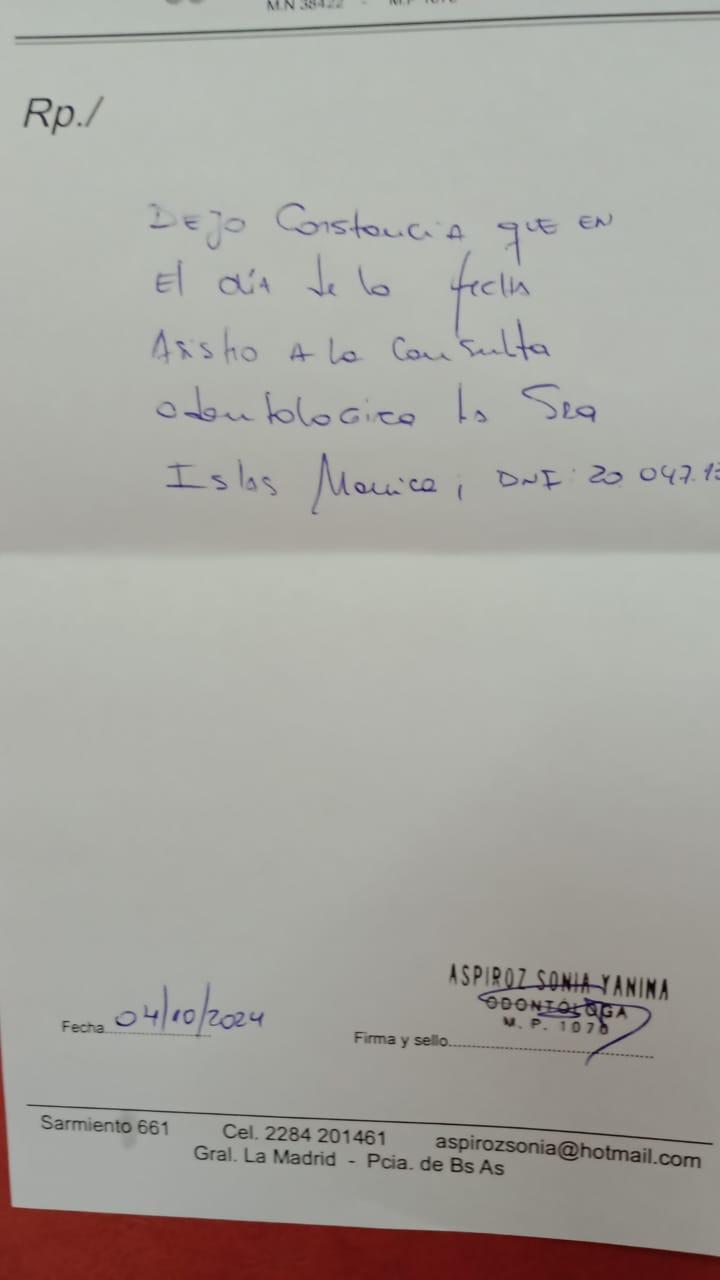 M.N 38422 - M.P 1070
Rp./
DEJO Constancia que EN
El día de la fecha
Asistio A la Consulta
odontologica la Sra
Islas Monica, DNI: 20.047.13
Fecha 04/10/2024
ASPIROZ SONIA YANINA
ODONTOLOGA
M. P. 1070
Firma y sello
Sarmiento 661 Cel. 2284 201461 aspirozsonia@hotmail.com
Gral. La Madrid - Pcia. de Bs As